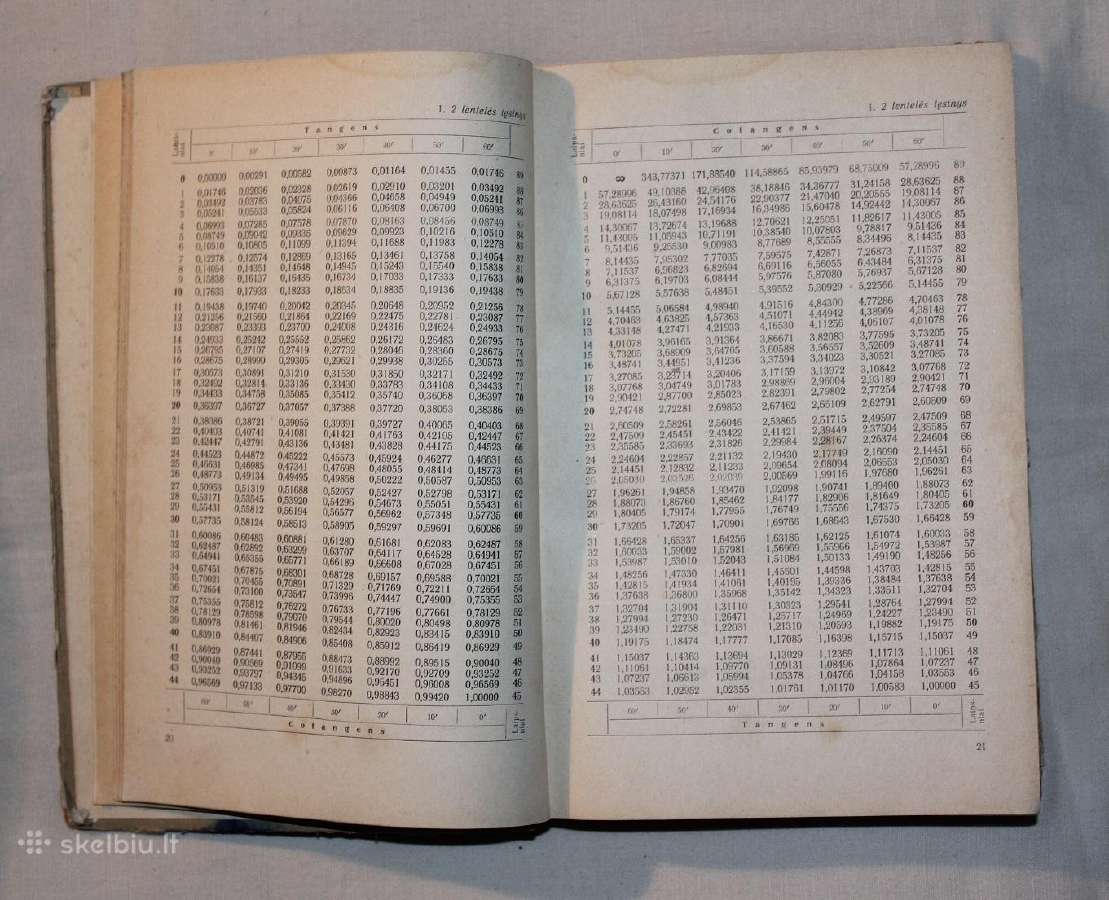 1. 2 lentelės tęsinys
Laips-
niai
Tangens
0' 10' 20' 30' 40' 50' 60'
0 0,00000 0,00291 0,00582 0,00873 0,01164 0,01455 0,01746 89
1 0,01746 0,02036 0,02328 0,02619 0,02910 0,03201 0,03492 88
2 0,03492 0,03783 0,04075 0,04366 0,04658 0,04949 0,05241 87
3 0,05241 0,05533 0,05824 0,06116 0,06408 0,06700 0,06993 86
4 0,06993 0,07285 0,07578 0,07870 0,08163 0,08456 0,08749 85
5 0,08749 0,09042 0,09335 0,09629 0,09923 0,10216 0,10510 84
6 0,10510 0,10805 0,11099 0,11394 0,11688 0,11983 0,12278 83
7 0,12278 0,12574 0,12869 0,13165 0,13461 0,13758 0,14054 82
8 0,14054 0,14351 0,14648 0,14945 0,15243 0,15540 0,15838 81
9 0,15838 0,16137 0,16435 0,16734 0,17033 0,17333 0,17633 80
10 0,17633 0,17933 0,18233 0,18534 0,18835 0,19136 0,19438 79
11 0,19438 0,19740 0,20042 0,20345 0,20648 0,20952 0,21256 78
12 0,21256 0,21560 0,21864 0,22169 0,22475 0,22781 0,23087 77
13 0,23087 0,23393 0,23700 0,24008 0,24316 0,24624 0,24933 76
14 0,24933 0,25242 0,25552 0,25862 0,26172 0,26483 0,26795 75
15 0,26795 0,27107 0,27419 0,27732 0,28046 0,28360 0,28675 74
16 0,28675 0,28990 0,29305 0,29621 0,29938 0,30255 0,30573 73
17 0,30573 0,30891 0,31210 0,31530 0,31850 0,32171 0,32492 72
18 0,32492 0,32814 0,33136 0,33460 0,33783 0,34108 0,34433 71
19 0,34433 0,34758 0,35085 0,35412 0,35740 0,36068 0,36397 70
20 0,36397 0,36727 0,37057 0,37388 0,37720 0,38053 0,38386 69
21 0,38386 0,38721 0,39055 0,39391 0,39727 0,40065 0,40403 68
22 0,40403 0,40741 0,41081 0,41421 0,41763 0,42105 0,42447 67
23 0,42447 0,42791 0,43136 0,43481 0,43828 0,44175 0,44523 66
24 0,44523 0,44872 0,45222 0,45573 0,45924 0,46277 0,46631 65
25 0,46631 0,46985 0,47341 0,47698 0,48055 0,48414 0,48773 64
26 0,48773 0,49134 0,49495 0,49858 0,50222 0,50587 0,50953 63
27 0,50953 0,51319 0,51688 0,52057 0,52427 0,52798 0,53171 62
28 0,53171 0,53545 0,53920 0,54296 0,54673 0,55051 0,55431 61
29 0,55431 0,55812 0,56194 0,56577 0,56962 0,57348 0,57735 60
30 0,57735 0,58124 0,58513 0,58905 0,59297 0,59691 0,60086 59
31 0,60086 0,60483 0,60881 0,61280 0,61681 0,62083 0,62487 58
32 0,62487 0,62892 0,63299 0,63707 0,64117 0,64528 0,64941 57
33 0,64941 0,65355 0,65771 0,66189 0,66608 0,67028 0,67451 56
34 0,67451 0,67875 0,68301 0,68728 0,69157 0,69588 0,70021 55
35 0,70021 0,70455 0,70891 0,71329 0,71769 0,72211 0,72654 54
36 0,72654 0,73100 0,73547 0,73996 0,74447 0,74900 0,75355 53
37 0,75355 0,75812 0,76272 0,76733 0,77196 0,77661 0,78129 52
38 0,78129 0,78598 0,79070 0,79544 0,80020 0,80498 0,80978 51
39 0,80978 0,81461 0,81946 0,82434 0,82923 0,83415 0,83910 50
40 0,83910 0,84407 0,84906 0,85408 0,85912 0,86419 0,86929 49
41 0,86929 0,87441 0,87955 0,88473 0,88992 0,89515 0,90040 48
42 0,90040 0,90569 0,91099 0,91633 0,92170 0,92709 0,93252 47
43 0,93252 0,93797 0,94345 0,94896 0,95451 0,96008 0,96569 46
44 0,96569 0,97133 0,97700 0,98270 0,98843 0,99420 1,00000 45
60' 50' 40' 30' 20' 10' 0'
Laips-
niai
Cotangens
20
1. 2 lentelės tęsinys
Laips-
niai
Cotangens
0' 10' 20' 30' 40' 50' 60'
0 ∞ 343,77371 171,88540 114,58865 85,93979 68,75009 57,28996 89
1 57,28996 49,10388 42,96408 38,18846 34,36777 31,24158 28,63625 88
2 28,63625 26,43160 24,54176 22,90377 21,47040 20,20555 19,08114 87
3 19,08114 18,07498 17,16934 16,34986 15,60478 14,92442 14,30067 86
4 14,30067 13,72674 13,19688 12,70621 12,25051 11,82617 11,43005 85
5 11,43005 11,05943 10,71191 10,38540 10,07803 9,78817 9,51436 84
6 9,51436 9,25530 9,00983 8,77689 8,55555 8,34496 8,14435 83
7 8,14435 7,95302 7,77035 7,59575 7,42871 7,26873 7,11537 82
8 7,11537 6,96823 6,82694 6,69116 6,56055 6,43484 6,31375 81
9 6,31375 6,19703 6,08444 5,97576 5,87080 5,76937 5,67128 80
10 5,67128 5,57638 5,48451 5,39552 5,30929 5,22566 5,14455 79
11 5,14455 5,06584 4,98940 4,91516 4,84300 4,77286 4,70463 78
12 4,70463 4,63825 4,57363 4,51071 4,44942 4,38969 4,38148 77
13 4,33148 4,27471 4,21933 4,16530 4,11256 4,06107 4,01078 76
14 4,01078 3,96165 3,91364 3,86671 3,82083 3,77595 3,73205 75
15 3,73205 3,68909 3,64705 3,60588 3,56557 3,52609 3,48741 74
16 3,48741 3,44951 3,41236 3,37594 3,34023 3,30521 3,27085 73
17 3,27085 3,23714 3,20406 3,17159 3,13972 3,10842 3,07768 72
18 3,07768 3,04749 3,01783 2,98869 2,96004 2,93189 2,90421 71
19 2,90421 2,87700 2,85023 2,82391 2,79802 2,77254 2,74748 70
20 2,74748 2,72281 2,69853 2,67462 2,65109 2,62791 2,60509 69
21 2,60509 2,58261 2,56046 2,53865 2,51715 2,49597 2,47509 68
22 2,47509 2,45451 2,43422 2,41421 2,39449 2,37504 2,35585 67
23 2,35585 2,33693 2,31826 2,29984 2,28167 2,26374 2,24604 66
24 2,24604 2,22857 2,21132 2,19430 2,17749 2,16090 2,14451 65
25 2,14451 2,12832 2,11233 2,09654 2,08094 2,06553 2,05030 64
26 2,05030 2,03526 2,02039 2,00569 1,99116 1,97680 1,96261 63
27 1,96261 1,94858 1,93470 1,92098 1,90741 1,89400 1,88073 62
28 1,88073 1,86760 1,85462 1,84177 1,82906 1,81649 1,80405 61
29 1,80405 1,79174 1,77955 1,76749 1,75556 1,74375 1,73205 60
30 1,73205 1,72047 1,70901 1,69766 1,68643 1,67530 1,66428 59
31 1,66428 1,65337 1,64256 1,63185 1,62125 1,61074 1,60033 58
32 1,60033 1,59002 1,57981 1,56969 1,55966 1,54972 1,53987 57
33 1,53987 1,53010 1,52043 1,51084 1,50133 1,49190 1,48256 56
34 1,48256 1,47330 1,46411 1,45501 1,44598 1,43703 1,42815 55
35 1,42815 1,41934 1,41061 1,40195 1,39336 1,38484 1,37638 54
36 1,37638 1,36800 1,35968 1,35142 1,34323 1,33511 1,32704 53
37 1,32704 1,31904 1,31110 1,30323 1,29541 1,28764 1,27994 52
38 1,27994 1,27230 1,26471 1,25717 1,24969 1,24227 1,23490 51
39 1,23490 1,22758 1,22031 1,21310 1,20593 1,19882 1,19175 50
40 1,19175 1,18474 1,17777 1,17085 1,16398 1,15715 1,15037 49
41 1,15037 1,14363 1,13694 1,13029 1,12369 1,11713 1,11061 48
42 1,11061 1,10414 1,09770 1,09131 1,08496 1,07864 1,07237 47
43 1,07237 1,06613 1,05994 1,05378 1,04766 1,04158 1,03553 46
44 1,03553 1,02952 1,02355 1,01761 1,01170 1,00583 1,00000 45
60' 50' 40' 30' 20' 10' 0'
Laips-
niai
Tangens
21
skelbiu.lt